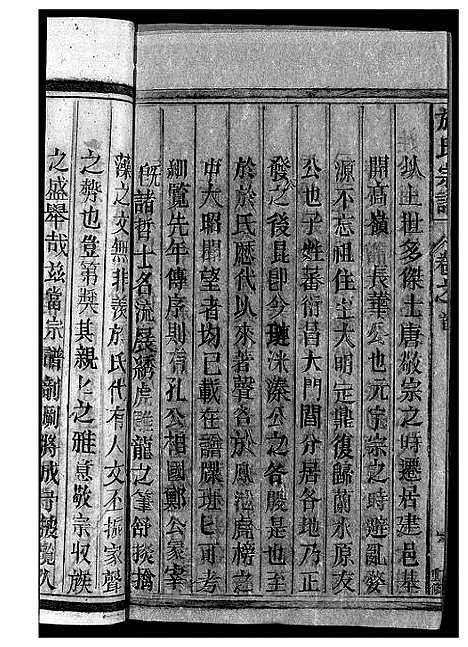 於氏宗譜 卷之首
從上世多傑士唐敬宗之時遷居建邑基
開高嶺 振華公也元宁宗之時避亂婺
源不忘祖住大明定鼎復歸蘭水原友
公也子姓蕃衍昌大門閭分居各地乃正
發之後昆卽今璉洙溱公之各股是也至
於於氏歷代以來著聲名於鳳池虎榜之
中大昭聞望者均已載在譜牒班可考
細覽先年傳序則有孔公相國鄭公家宰
旣諸哲士名流展綉虎雕龍之筆舒掞摛
藻之文無非羨於氏代有人文丕振家聲
之勢也豈第奬其親之雅意敬宗收族
之盛舉哉玆當宗譜剞劂將成守